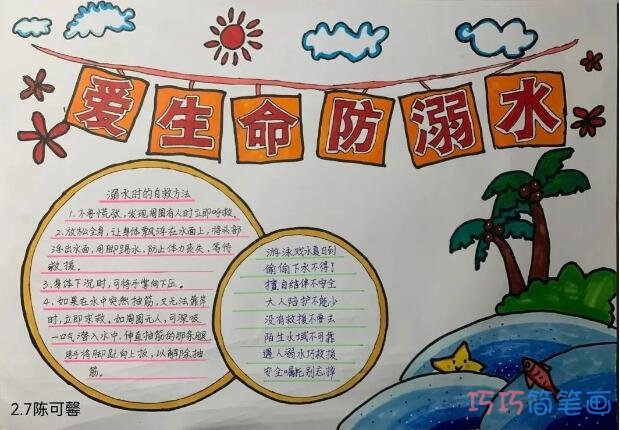 爱生命防溺水
溺水时的自救方法
1.不要慌张,发现周围有人时立即呼救。
2.放松全身,让身体飘浮在水面上,将头部
浮出水面,用脚踢水,防止体力丧失,等待
救援。
3.身体下沉时,可将手掌向下压。
4.如果在水中突然抽筋,又无法靠岸
时,立即求救。如周围无人,可深吸
一口气潜入水中,伸直抽筋的那条腿,
用手将脚趾向上扳,以解除抽
筋。
游泳戏水夏日到
偷偷下水不得了
擅自结伴不安全
大人陪护不能少
没有救援不要去
陌生水域不可靠
遇人溺水巧救援
安全嘱托别忘掉
2.7陈可馨
巧巧简笔画